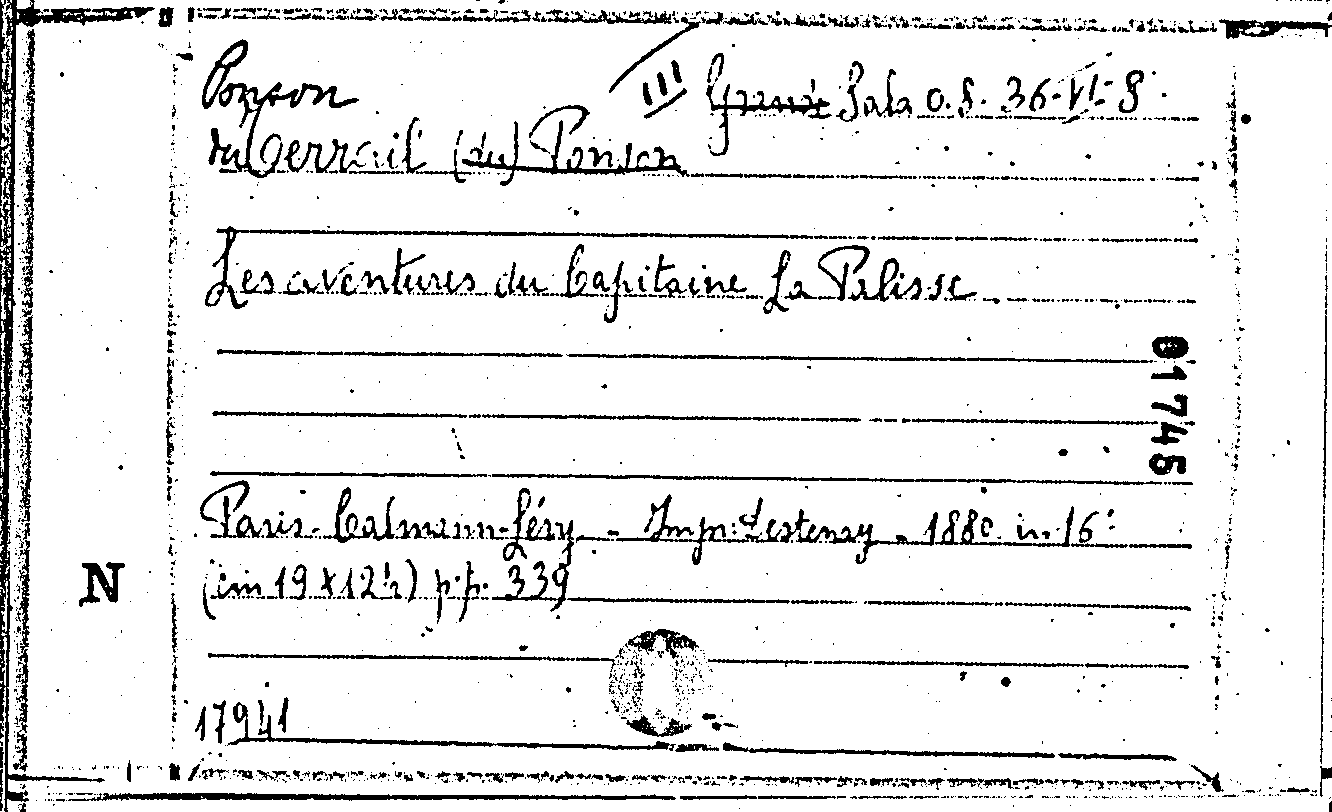 Ponson
III Grande Sala O.S. 36-VI-8.
du Terrail (du) Ponson
Les aventures du Capitaine La Palisse
01745
Paris - Calmann-Lévy - Impr. Lestenay - 1880 in-16°
N
(cm 19 x 12½) p.p. 339
17941